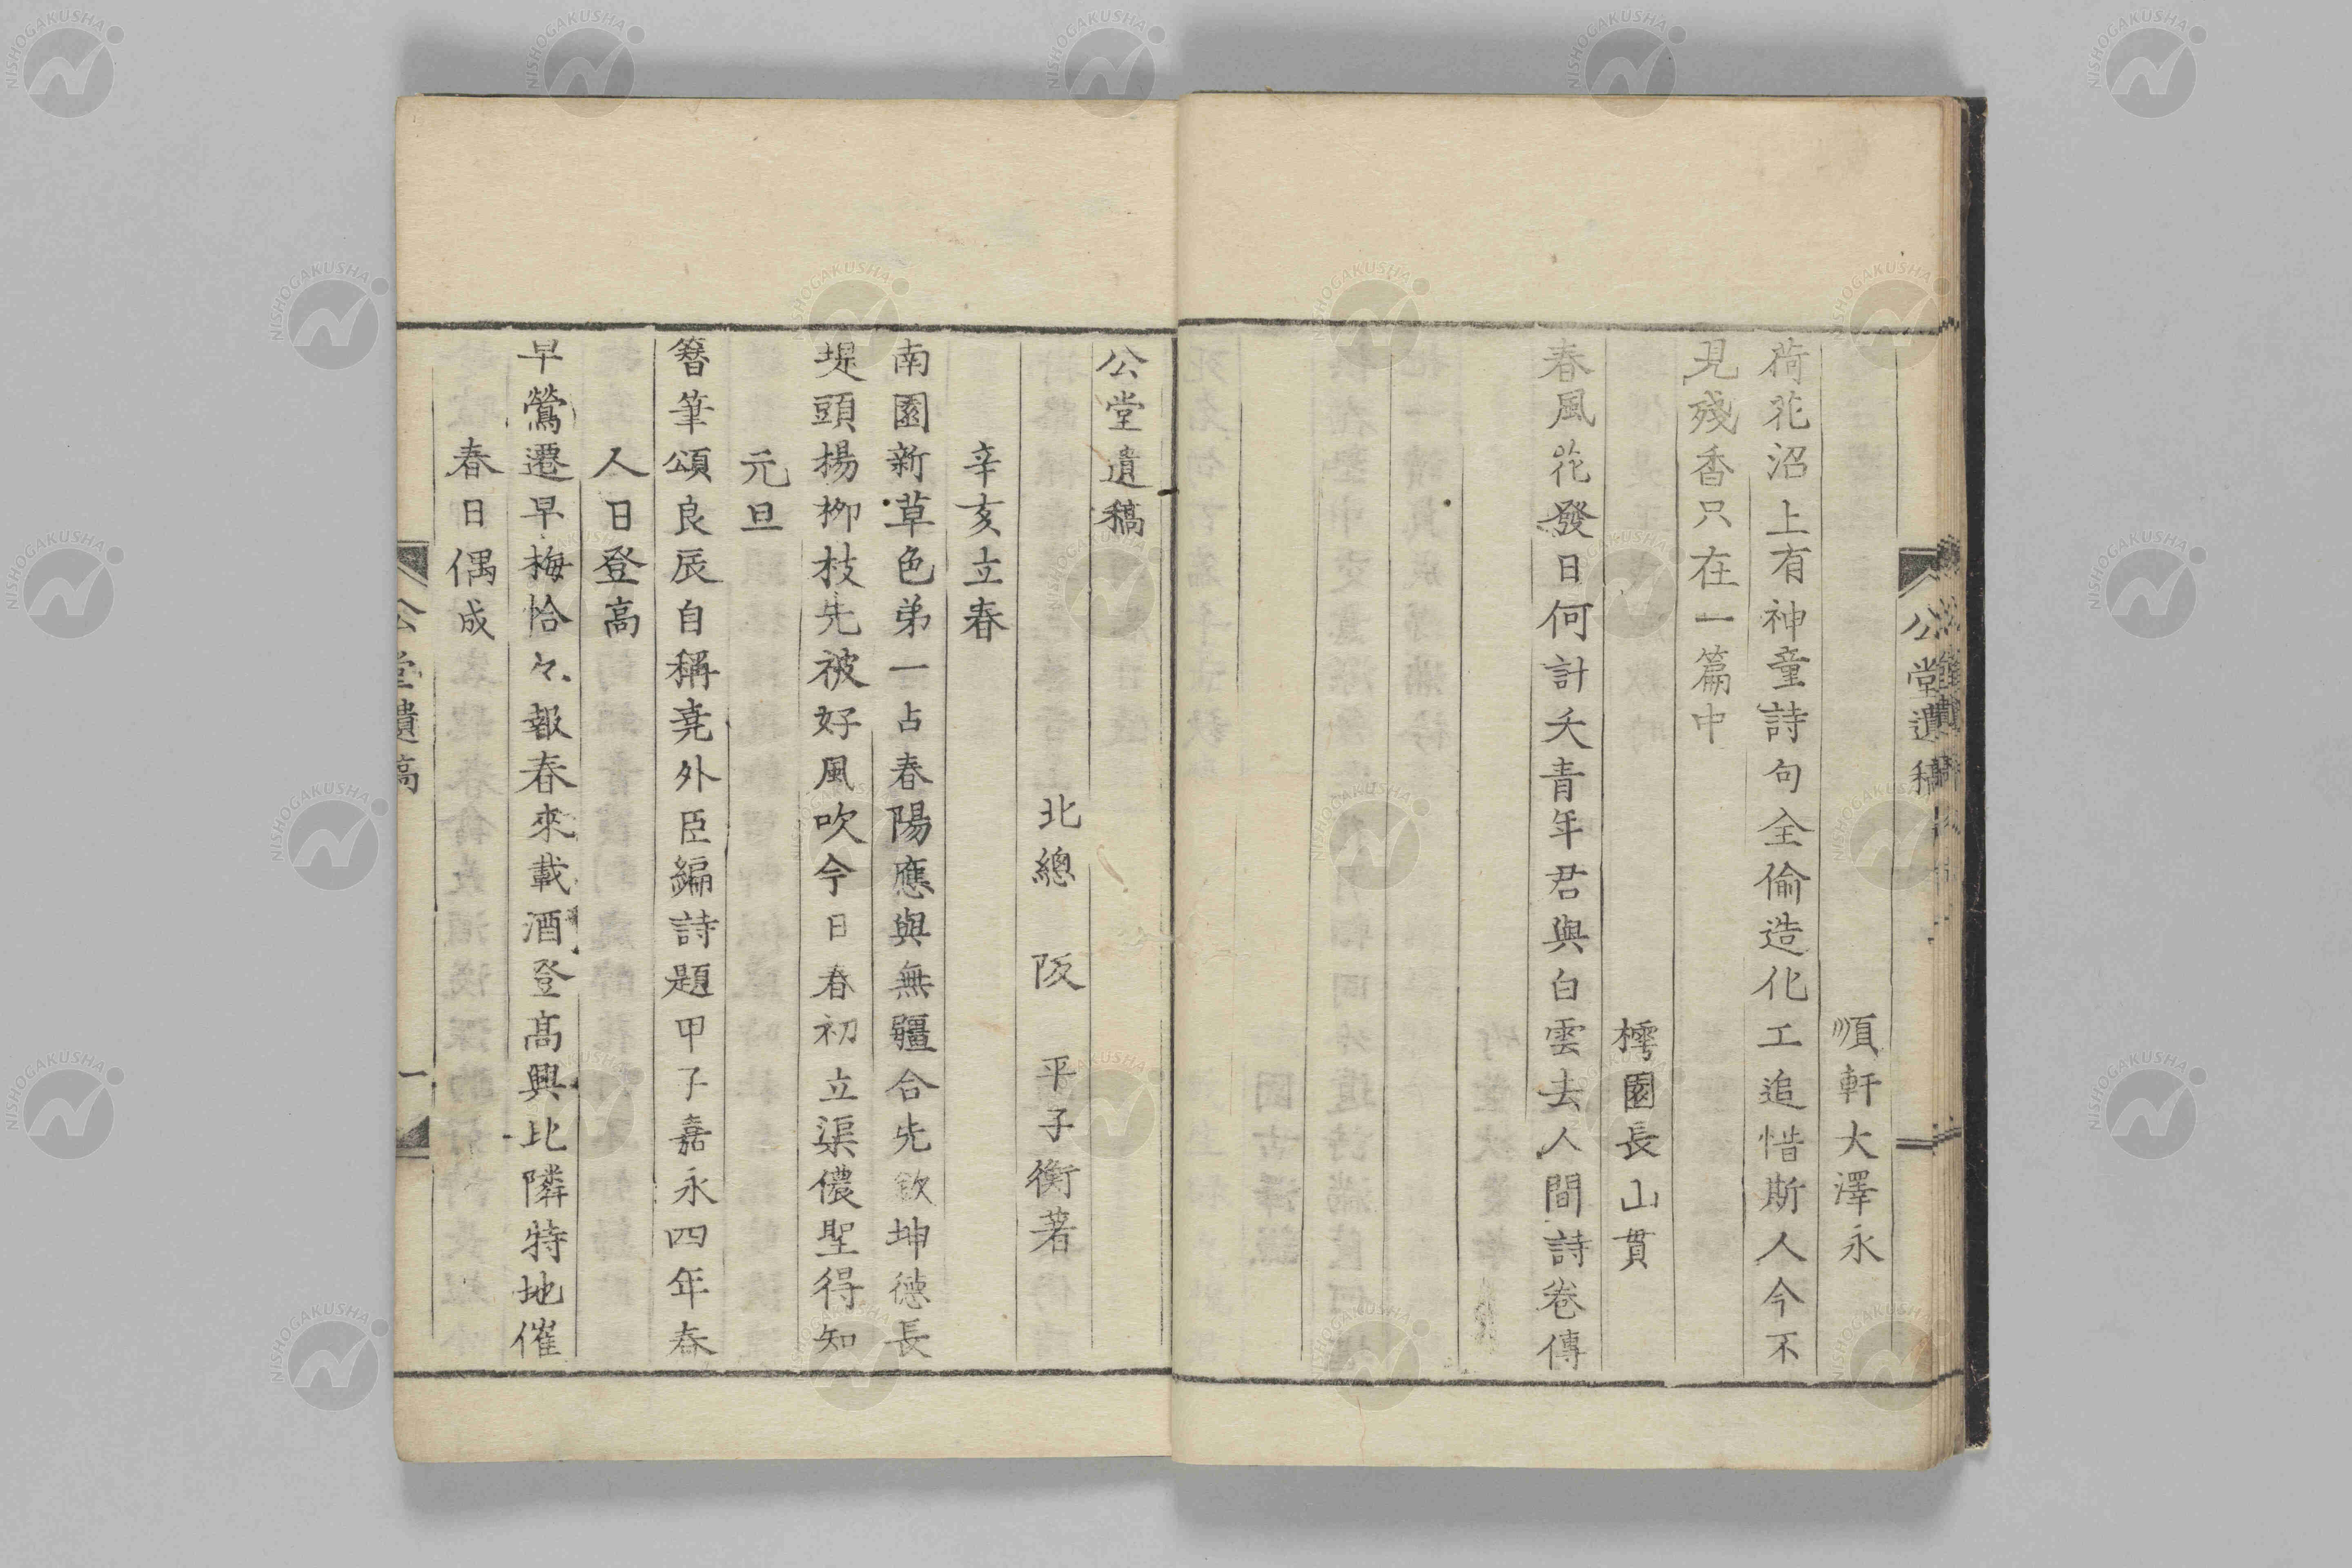 順軒大澤永
荷花沼上有神童詩句全偷造化工追惜斯人今不
見殘香只在一篇中
樗園長山貫
春風花發日何計夭青年君與白雲去人間詩卷傳
公堂遺稿
公堂遺稿
北總 阪 平子衡著
辛亥立春
南園新草色弟一占春陽應與無疆合先欽坤德長
堤頭楊柳枝先被好風吹今日春初立渠儂聖得知
元旦
簪筆頌良辰自稱堯外臣編詩題甲子嘉永四年春
人日登高
早鶯遷早梅恰々報春來載酒登高興比隣特地催
春日偶成
公堂遺稿 一
NISHOGAKUSHA